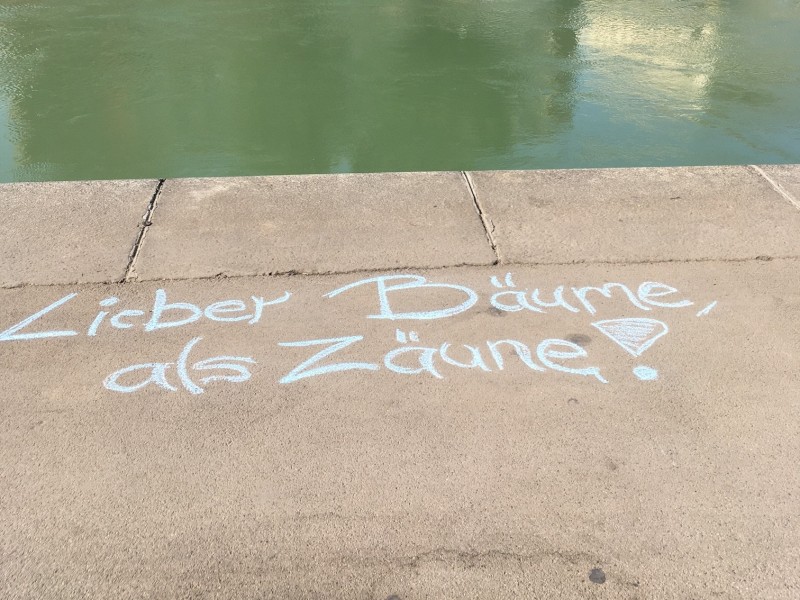 Lieber Bäume,
als Zäune!